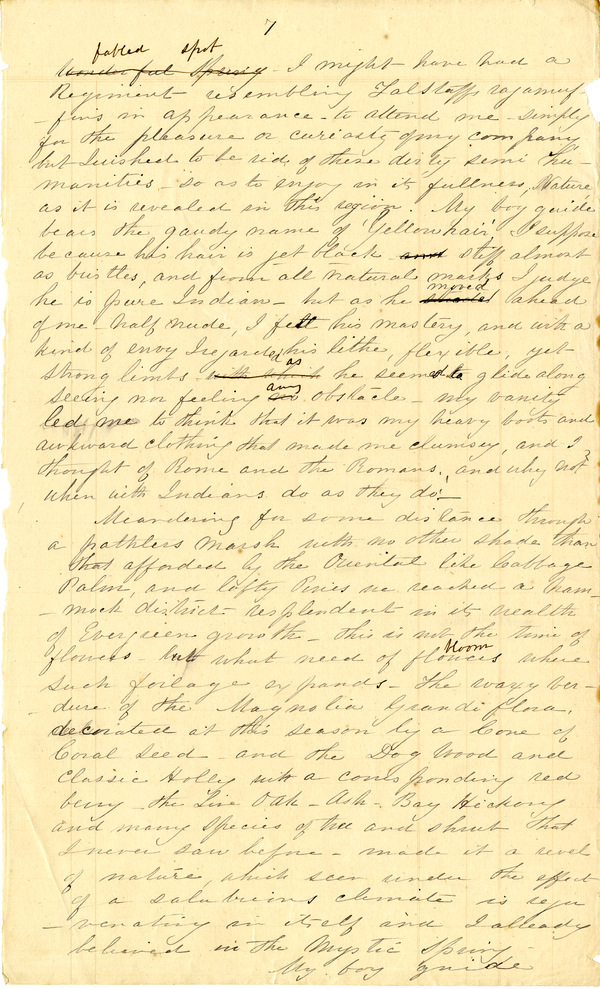 7
fabled spot
wonderful Spring - I might have had a
Regiment resembling Falstaffs ragamuf-
-fins in appearance - to attend me - simply
for the pleasure or curiosty of my company
but I wished to be rid of these dirty semi "hu-
manities - so as to enjoy in its fullness, Nature
as it is revealed in this region. My boy guide
bears the gaudy name of Yellow hair, I suppose
because his hair is jet black and stiff almost
as bustles, and from all natural marks I judge
moved
he is pure Indian - but as he ahead
of me - half nude, I felt his mastery, and with a
kind of envy I regarded his lithe, flexible, yet
as
strong limbs - with which he seemed to glide along
any
seeing nor feeling no obstacle - my vanity
led me to think that it was my heavy boots and
awkward clothing that made me clumsey, and I
thought of Rome and the Romans, and why not
when with Indians do as they do?
Meandering for some distance through
a pathless marsh with no other shade than
that afforded by the Oriental like Cabbage
Palm, and lofty Pines we reached a Ham-
-mock district resplendent in its wealth
of Evergreen growth - this is not the time of
bloom
flowers - but what need of flowers where
such foilage expands - The waxy ver-
-dure of the Magnolia Grandiflora,
decorated at this season by a Cone of
Coral seed - and the Dog Wood and
Classic Holly with a corresponding red
berry - the Live Oak - Ash - Bay Hickory
and many species of tree and shrub that
I never saw before - made it a revel
of nature, which seen under the effect
of a salubrious climate is reju
-venating in itself and I already
believed in the Mystic Spring -
My boy guide